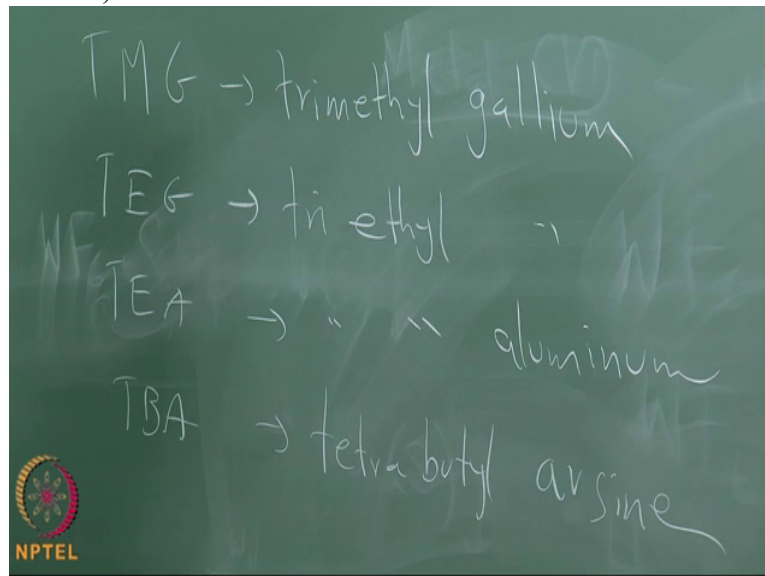 TMG → trimethyl gallium
TEG → tri ethyl "
TEA → " " aluminum
TBA → tetra butyl arsine
NPTEL